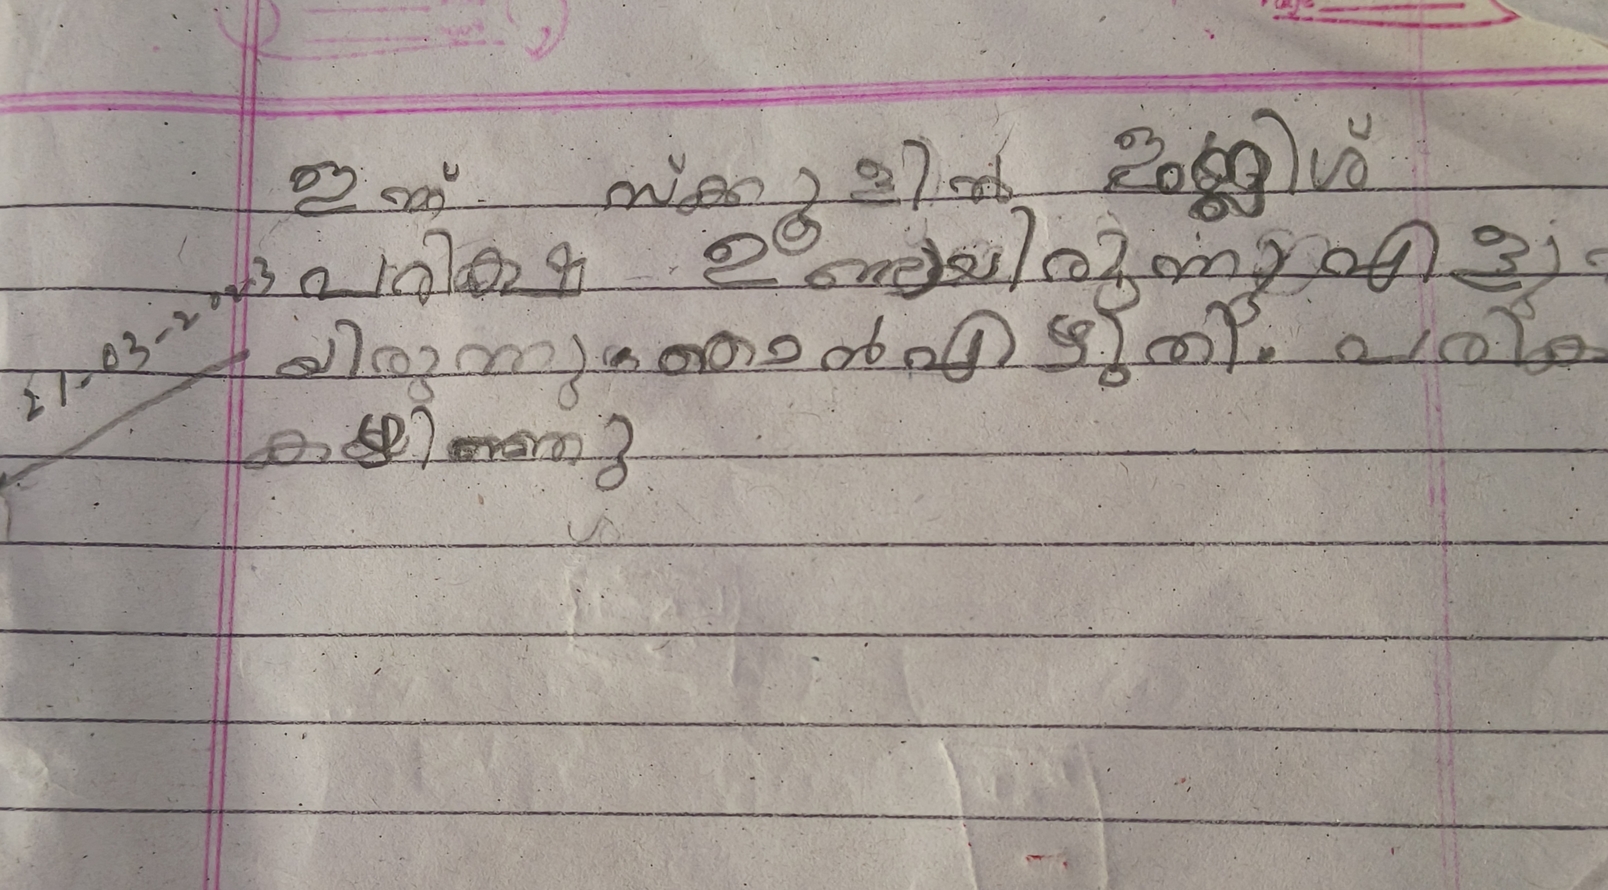 ഇന്ന് സ്ക്കൂളിൽ ഇംഗ്ലിശ്
21-03-2023 പരികഷ ഉണ്ടായിരുന്നു എളു
യിരുന്നു ഞാൻ എഴുതി. പരിക
കഴിഞ്ഞു